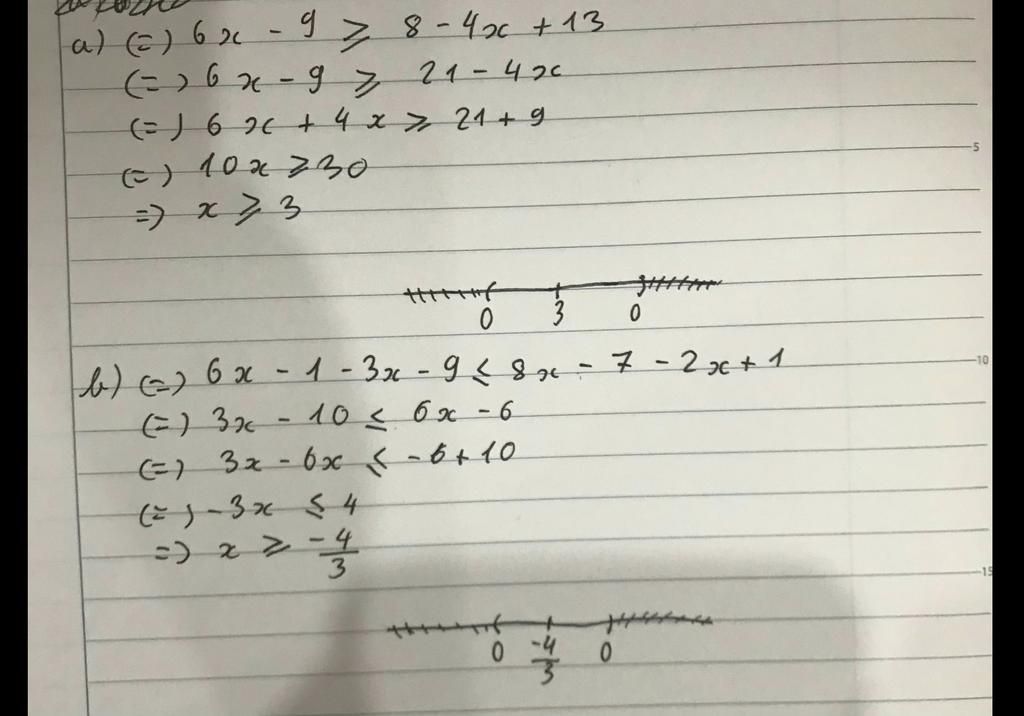 a) (=) 6x - 9 ⩾ 8 - 4x + 13
(=) 6x - 9 ⩾ 21 - 4x
(=) 6x + 4x ⩾ 21 + 9
(=) 10x ⩾ 30
=) x ⩾ 3
5
0 3 0
b) (=) 6x - 1 - 3x - 9 ⩽ 8x - 7 - 2x + 1
10
(=) 3x - 10 ⩽ 6x - 6
(=) 3x - 6x ⩽ -6 + 10
(=) -3x ⩽ 4
=) x ⩾ -4/3
15
0 -4/3 0